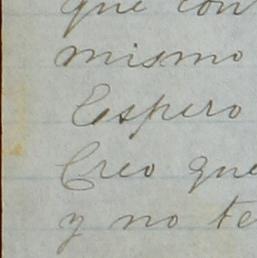 que con
mismo
Espero
Creo que
y no te